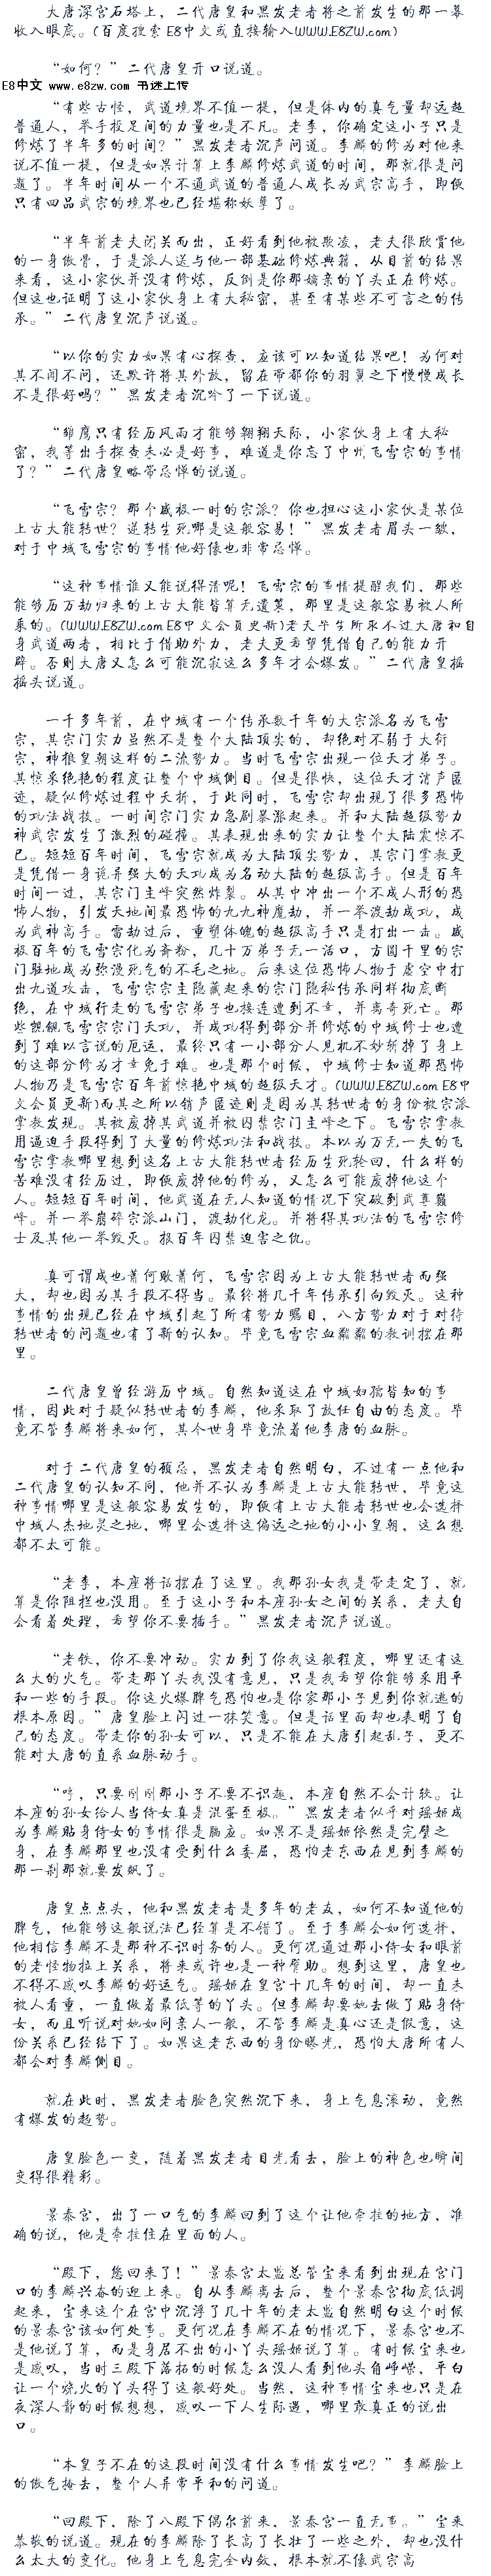 大唐深宫石塔上，二代唐皇和黑发老者将之前发生的那一幕
收入眼底。(百度搜索 E8中文或直接输入WWW.E8ZW.com)
“如何？”二代唐皇开口说道。
E8中文 www.e8zw.com 书迷上传
“有些古怪，武道境界不值一提，但是体内的真气量却远超
普通人，举手投足间的力量也是不凡。老李，你确定这小子只是
修炼了半年多的时间？”黑发老者沉声问道。李麟的修为对他来
说不值一提，但是如果计算上李麟修炼武道的时间，那就很是问
题了。半年时间从一个不通武道的普通人成长为武宗高手，即便
只有四品武宗的境界也已经堪称妖孽了。
“半年前老夫闭关而出，正好看到他被欺凌，老夫很欣赏他
的一身傲骨，于是派人送与他一部基础修炼典籍，从目前的结果
来看，这小家伙并没有修炼，反倒是你那嫡亲的丫头正在修炼。
但这也证明了这小家伙身上有大秘密，甚至有某些不可言之的传
承。”二代唐皇沉声说道。
“以你的实力如果有心探查，应该可以知道结果吧！为何对
其不闻不问，还默许将其外放，留在帝都你的羽翼之下慢慢成长
不是很好吗？”黑发老者沉吟了一下说道。
“雏鹰只有经历风雨才能够翱翔天际，小家伙身上有大秘
密，我等出手探查未必是好事，难道是你忘了中州飞雪宗的事情
了？”二代唐皇略带忌惮的说道。
“飞雪宗？那个盛极一时的宗派？你也担心这小家伙是某位
上古大能转世？逆转生死哪是这般容易！”黑发老者眉头一皱，
对于中域飞雪宗的事情他好像也非常忌惮。
“这种事情谁又能说得清呢！飞雪宗的事情提醒我们，那些
能够历万劫归来的上古大能皆算无遗策，那里是这般容易被人所
乘的。(WWW.E8ZW.com E8中文会员更新)老夫毕生所求不过大唐和自
身武道两者，相比于借助外力，老夫更希望凭借自己的能力开
辟。否则大唐又怎么可能沉寂这么多年才会爆发。”二代唐皇摇
摇头说道。
一千多年前，在中域有一个传承数千年的大宗派名为飞雪
宗，其宗门实力虽然不是整个大陆顶尖的，却绝对不弱于大衍
宗，神狼皇朝这样的二流势力。当时飞雪宗出现一位天才弟子。
其惊才绝艳的程度让整个中域侧目。但是很快，这位天才消声匿
迹，疑似修炼过程中夭折，于此同时，飞雪宗却出现了很多恐怖
的功法战技。一时间宗门实力急剧暴涨起来。并和大陆超级势力
神武宗发生了激烈的碰撞。其表现出来的实力让整个大陆震惊不
已。短短百年时间，飞雪宗就成为大陆顶尖势力，其宗门掌教更
是凭借一身诡异强大的天功成为名动大陆的超级高手。但是百年
时间一过，其宗门主峰突然炸裂。从其中冲出一个不成人形的恐
怖人物，引发天地间最恐怖的九九神魔劫，并一举渡劫成功，成
为武神高手。雷劫过后，重塑体魄的超级高手只是打出一击。盛
极百年的飞雪宗化为斋粉，几十万弟子无一活口，方圆千里的宗
门驻地成为弥漫死气的不毛之地。后来这位恐怖人物于虚空中打
出九道攻击，飞雪宗宗主隐藏起来的宗门隐秘传承同样彻底断
绝，在中域行走的飞雪宗弟子也接连遭到不幸，并离奇死亡。那
些觊觎飞雪宗宗门天功，并成功得到部分并修炼的中域修士也遭
到了难以言说的厄运，最终只有一小部分人见机不妙斩掉了身上
的这部分修为才幸免于难。也是那个时候，中域修士知道那恐怖
人物乃是飞雪宗百年前惊艳中域的超级天才。(WWW.E8ZW.com E8中
文会员更新)而其之所以销声匿迹则是因为其转世者的身份被宗派
掌教发现。其被废掉其武道并被囚禁宗门主峰之下。飞雪宗掌教
用逼迫手段得到了大量的修炼功法和战技。本以为万无一失的飞
雪宗掌教哪里想到这名上古大能转世者经历生死轮回，什么样的
苦难没有经历过，即便废掉他的修为，又怎么可能废掉他这个
人。短短百年时间，他武道在无人知道的情况下突破到武尊巅
峰。并一举崩碎宗派山门，渡劫化龙。并将得其功法的飞雪宗修
士及其他一举毁灭。报百年囚禁迫害之仇。
真可谓成也萧何败萧何，飞雪宗因为上古大能转世者而强
大，却也因为其手段不得当。最终将几千年传承引向毁灭。这种
事情的出现已经在中域引起了所有势力瞩目，八方势力对于对待
转世者的问题也有了新的认知。毕竟飞雪宗血粼粼的教训摆在那
里。
二代唐皇曾经游历中域。自然知道这在中域妇孺皆知的事
情，因此对于疑似转世者的李麟，他采取了放任自由的态度。毕
竟不管李麟将来如何，其今世身毕竟流着他李唐的血脉。
对于二代唐皇的顾忌，黑发老者自然明白，不过有一点他和
二代唐皇的认知不同，他并不认为李麟是上古大能转世，毕竟这
种事情哪里是这般容易发生的，即便有上古大能者转世也会选择
中域人杰地灵之地，哪里会选择这偏远之地的小小皇朝，这么想
都不太可能。
“老李，本座将话摆在了这里。我那孙女我是带走定了，就
算是你阻拦也没用。至于这小子和本座孙女之间的关系，老夫自
会看着处理，希望你不要插手。”黑发老者沉声说道。
“老铁，你不要冲动。实力到了你我这般程度，哪里还有这
么大的火气。带走那丫头我没有意见，只是我希望你能够采用平
和一些的手段。你这火爆脾气恐怕也是你家那小子见到你就逃的
根本原因。”唐皇脸上闪过一抹笑意。但是话里面却也表明了自
己的态度。带走你的孙女可以，只是不能在大唐引起乱子，更不
能对大唐的直系血脉动手。
“哼，只要刚刚那小子不要不识趣，本座自然不会计较。让
本座的孙女给人当侍女真是混蛋至极。”黑发老者似乎对瑶姬成
为李麟贴身侍女的事情很是膈应。如果不是瑶姬依然是完璧之
身，在李麟那里也没有受到什么委屈，恐怕老东西在见到李麟的
那一刹那就要发飙了。
唐皇点点头，他和黑发老者是多年的老友，如何不知道他的
脾气，他能够这般说法已经算是不错了。至于李麟会如何选择，
他相信李麟不是那种不识时务的人。更何况通过那小侍女和眼前
的老怪物拉上关系，将来或许也是一种帮助。想到这里，唐皇也
不得不感叹李麟的好运气。瑶姬在皇宫十几年的时间，却一直未
被人看重，一直做着最低等的丫头。但李麟却要她去做了贴身侍
女，而且听说对她如同亲人一般，不管李麟是真心还是假意，这
份关系已经结下了。如果这老东西的身份曝光，恐怕大唐所有人
都会对李麟侧目。
就在此时，黑发老者脸色突然沉下来，身上气息滚动，竟然
有爆发的趋势。
唐皇脸色一变，随着黑发老者目光看去，脸上的神色也瞬间
变得很精彩。
景泰宫，出了一口气的李麟回到了这个让他牵挂的地方，准
确的说，他是牵挂住在里面的人。
“殿下，您回来了！”景泰宫太监总管宝来看到出现在宫门
口的李麟兴奋的迎上来。自从李麟离去后，整个景泰宫彻底低调
起来，宝来这个在宫中沉浮了几十年的老太监自然明白这个时候
的景泰宫该如何处事。更何况在李麟不在的情况下，景泰宫也不
是他说了算，而是身居不出的小丫头瑶姬说了算。有时候宝来也
是感叹，当时三殿下落拓的时候怎么没人看到他头角峥嵘，平白
让一个烧火的丫头得了这般好处。当然，这种事情宝来也只是在
夜深人静的时候想想，感叹一下人生际遇，哪里敢真正的说出
口。
“本皇子不在的这段时间没有什么事情发生吧？”李麟脸上
的傲气掩去，整个人异常平和的问道。
“回殿下，除了八殿下偶尔前来，景泰宫一直无事。”宝来
恭敬的说道。现在的李麟除了长高了长壮了一些之外，却也没什
么太大的变化。他身上气息完全内敛，根本就不像武宗高